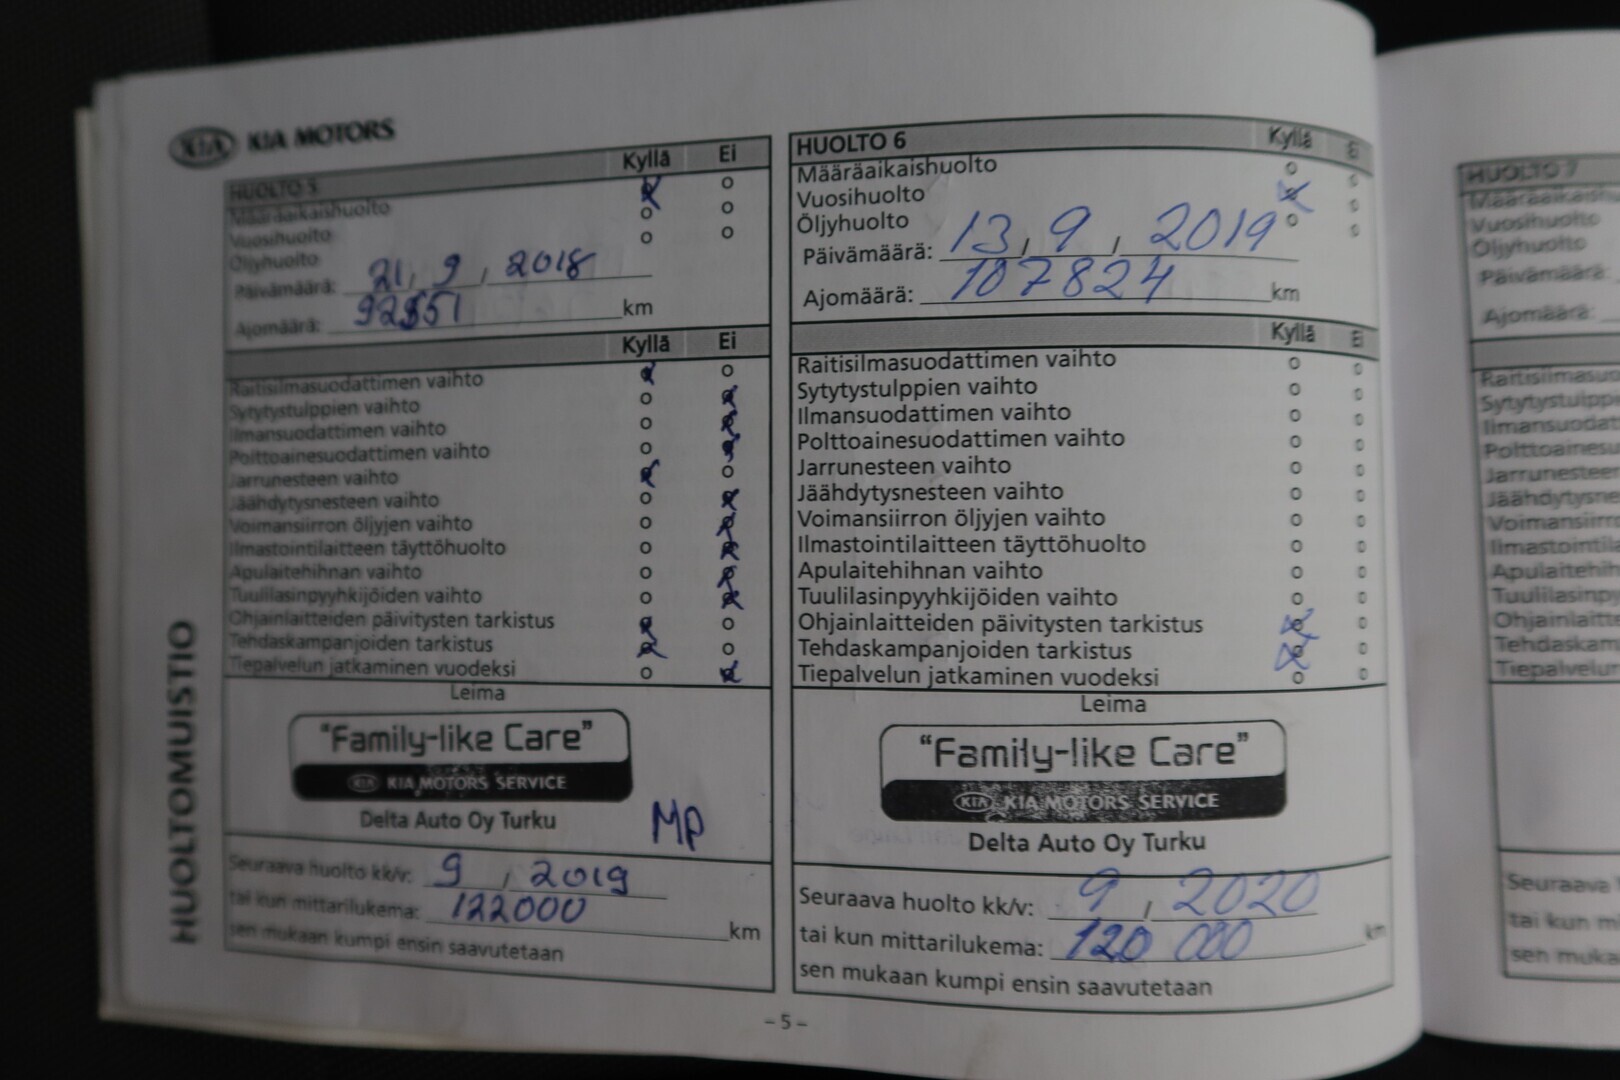 KIA KIA MOTORS
HUOLTOMUISTIO
HUOLTO 5 Kyllä Ei
Määräaikaishuolto
Vuosihuolto
Öljyhuolto
Päivämäärä: 21, 9, 2018
Ajomäärä: 92551 km
Kyllä Ei
Raitisilmasuodattimen vaihto
Sytytystulppien vaihto
Ilmansuodattimen vaihto
Polttoainesuodattimen vaihto
Jarrunesteen vaihto
Jäähdytysnesteen vaihto
Voimansiirron öljyjen vaihto
Ilmastointilaitteen täyttöhuolto
Apulaitehihnan vaihto
Tuulilasinpyyhkijöiden vaihto
Ohjainlaitteiden päivitysten tarkistus
Tehdaskampanjoiden tarkistus
Tiepalvelun jatkaminen vuodeksi
Leima
"Family-like Care"
KIA KIA MOTORS SERVICE
Delta Auto Oy Turku
MP
Seuraava huolto kk/v: 9, 2019
tai kun mittarilukema: 122000 km
sen mukaan kumpi ensin saavutetaan
HUOLTO 6 Kyllä Ei
Määräaikaishuolto
Vuosihuolto
Öljyhuolto
Päivämäärä: 13, 9, 2019
Ajomäärä: 107824 km
Kyllä Ei
Raitisilmasuodattimen vaihto
Sytytystulppien vaihto
Ilmansuodattimen vaihto
Polttoainesuodattimen vaihto
Jarrunesteen vaihto
Jäähdytysnesteen vaihto
Voimansiirron öljyjen vaihto
Ilmastointilaitteen täyttöhuolto
Apulaitehihnan vaihto
Tuulilasinpyyhkijöiden vaihto
Ohjainlaitteiden päivitysten tarkistus
Tehdaskampanjoiden tarkistus
Tiepalvelun jatkaminen vuodeksi
Leima
"Family-like Care"
KIA KIA MOTORS SERVICE
Delta Auto Oy Turku
Seuraava huolto kk/v: 9, 2020
tai kun mittarilukema: 120 000 km
sen mukaan kumpi ensin saavutetaan
- 5 -
HUOLTO 7
Määräaikaishu
Vuosihuolto
Öljyhuolto
Päivämäärä:
Ajomäärä:
Raitisilmasuo
Sytytystulppi
Ilmansuodat
Polttoainesu
Jarrunesteen
Jäähdytysne
Voimansiirr
Ilmastointila
Apulaitehih
Tuulilasinpy
Ohjainlaitte
Tehdaskam
Tiepalvelun
Seuraava
tai kun m
sen muka